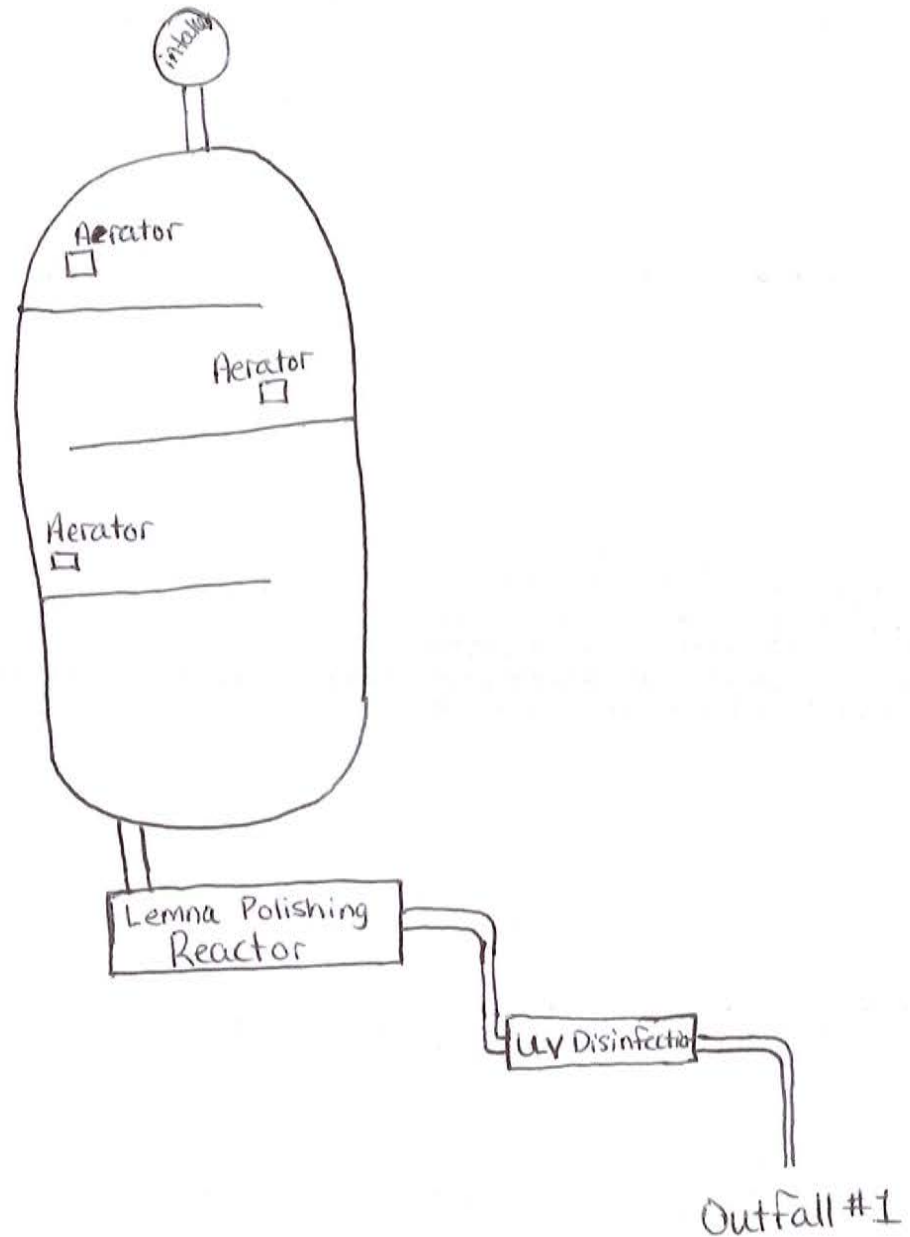 intake
Aerator
Aerator
Aerator
Lemna Polishing
Reactor
UV Disinfection
Outfall #1